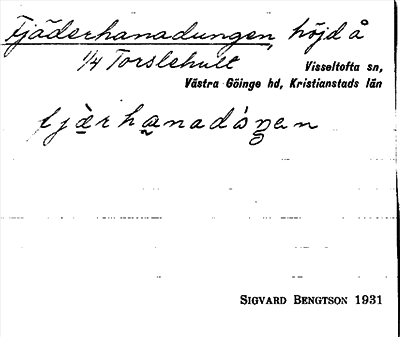 Tjäderhanadungen, höjd å
1/4 Torslehult
Visseltofta sn,
Västra Göinge hd, Kristianstads län
SIGVARD BENGTSON 1931